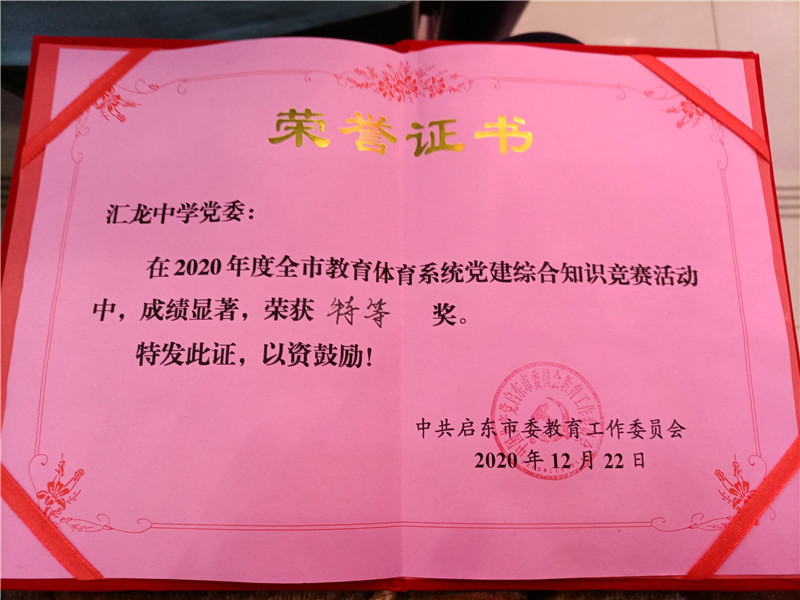 荣誉证书
汇龙中学党委：
在2020年度全市教育体育系统党建综合知识竞赛活动
中，成绩显著，荣获 特等 奖。
特发此证，以资鼓励！
中共启东市委教育工作委员会
2020年12月22日